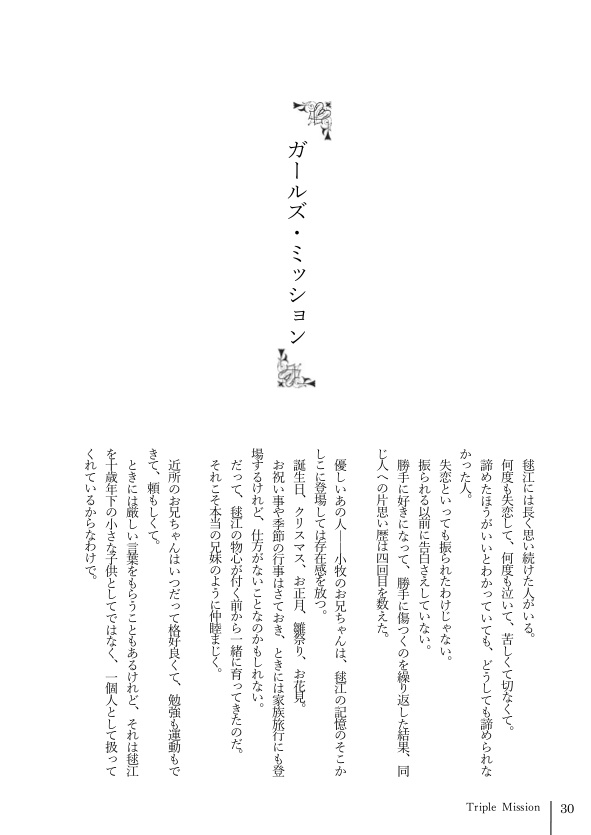 ガールズ・ミッション
毬江には長く思い続けた人がいる。
何度も失恋して、何度も泣いて、苦しくて切なくて。
諦めたほうがいいとわかっていても、どうしても諦められな
かった人。
失恋といっても振られたわけじゃない。
振られる以前に告白さえしていない。
勝手に好きになって、勝手に傷つくのを繰り返した結果、同
じ人への片思い歴は四回目を数えた。
優しいあの人――小牧のお兄ちゃんは、毬江の記憶のそこか
しこに登場しては存在感を放つ。
誕生日、クリスマス、お正月、雛祭り、お花見。
お祝い事や季節の行事はさておき、ときには家族旅行にも登
場するけれど、仕方がないことなのかもしれない。
だって、毬江の物心が付く前から一緒に育ってきたのだ。
それこそ本当の兄妹のように仲睦まじく。
近所のお兄ちゃんはいつだって格好良くて、勉強も運動もで
きて、頼もしくて。
ときには厳しい言葉をもらうこともあるけれど、それは毬江
を十歳年下の小さな子供としてではなく、一個人として扱って
くれているからなわけで。
Triple Mission
30